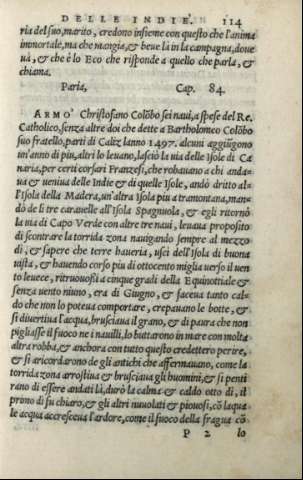 DELLE INDIE. 114
ria del suo, marito, credono insieme con questo che l'anima
immortale, ma che mangia, & beue là in la campagna, doue
uà, & che è lo Eco che risponde a quello che parla, &
chiama.
Paria, Cap. 84.
ARMO' Christofano Colōbo sei naui, a spese del Re
Catholico, senza altre doi che dette a Bartholomeo Colōbo
suo fratello, parti di Caliz lanno 1497. alcuni aggiūgono
un'anno di piu, altri lo leuano, lasciò la uia delle Isole di Ca
naria, per certi corsari Franzesi, che robauano a chi anda-
ua & ueniua delle Indie & di quelle Isole, andò dritto al
l'Isola della Madera, un'altra Isola piu a tramontana, man-
dò de li tre carauelle all'Isola Spagnuola, & egli ritornò
la uia di Capo Verde con altre tre naui, leuaua proposito
di scontrare la torrida zona nauigando sempre al mezzo
dì, & sapere che terre haueria, usci dell'Isola di buona
uista, & hauendo corso piu di ottocento miglia uerso il uen
to leuece, ritruouossi a cinque gradi della Equinottiale &
senza uento niuno, era di Giugno, & faceua tanto cal-
do che non lo poteua comportare, crepauano le botte, &
si diuertiua l'acqua, brusciaua il grano, & di paura che non
pigliasse il fuoco ne i nauilli, lo buttarono in mare con molta
altra robba, & anchora con tutto questo credettero perire,
& si aricordarono de gli antichi che affermauano, come la
torrida zona arrostiua & brusciaua gli huomini, & si penti
rano di essere andati là, durò la calma & caldo otto dì, il
primo di su chiaro, & gli altri nuuolati & piouosi, cō laqua
le acqua accresceua l'ardore, come il fuoco della fragua cō
P 2 lo